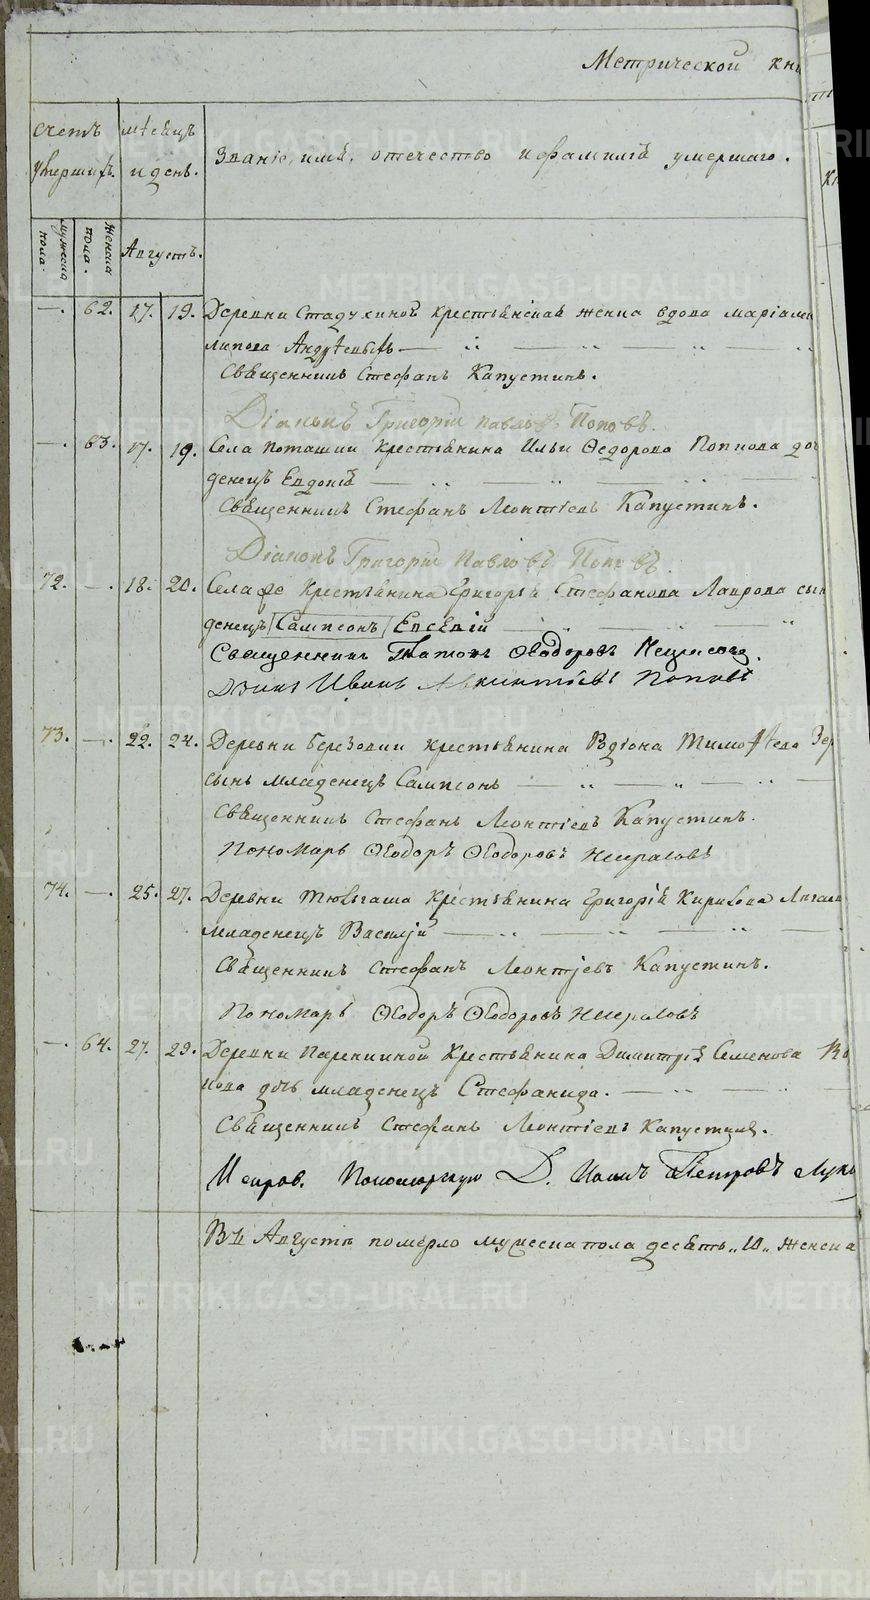 Метрической кни
счетъ умершихъ.
мѣсяцъ и день.
Званіе, имя, отечество и фамилія умершаго.
мужеска пола.
женска пола.
Августъ.
—. 62. 17. 19. Деревни Стадухиной крестьянская женка вдова Марія
липова
Священникъ Стефанъ Капустинъ.
Діаконъ Григорій Павловъ Поповъ.
—. 63. 17. 19. Села Поташки крестьянина Ильи Ѳедорова Попкова доч
денецъ Евдокія
Священникъ Стефанъ Леонтіевъ Капустинъ.
Діаконъ Григорій Павловъ Поповъ.
72. —. 18. 20. Села крестьянина Григорья Стефанова Лаврова сын
денецъ Сампсонъ Евсевій
Священникъ Платонъ Ѳеодоровъ Некрасовъ.
Иванъ Поповъ
73. —. 22. 24. Деревни Березовки крестьянина Родіона Тимоѳѣева
сынъ младенецъ Сампсонъ
Священникъ Стефанъ Леонтіевъ Капустинъ.
Пономарь Ѳеодоръ Ѳеодоровъ Некрасовъ
74. —. 25. 27. Деревни крестьянина Григорія Кирилова
младенецъ Василій
Священникъ Стефанъ Леонтіевъ Капустинъ.
Пономарь Ѳеодоръ Ѳеодоровъ Некрасовъ
—. 64. 27. 29. Деревни крестьянина Димитрія Семенова
кова дочь младенецъ Стефанида.
Священникъ Стефанъ Леонтіевъ Капустинъ.
Петровъ
Въ Августѣ померло мужеска пола десять „10„ женска
METRIKI.GASO-URAL.RU